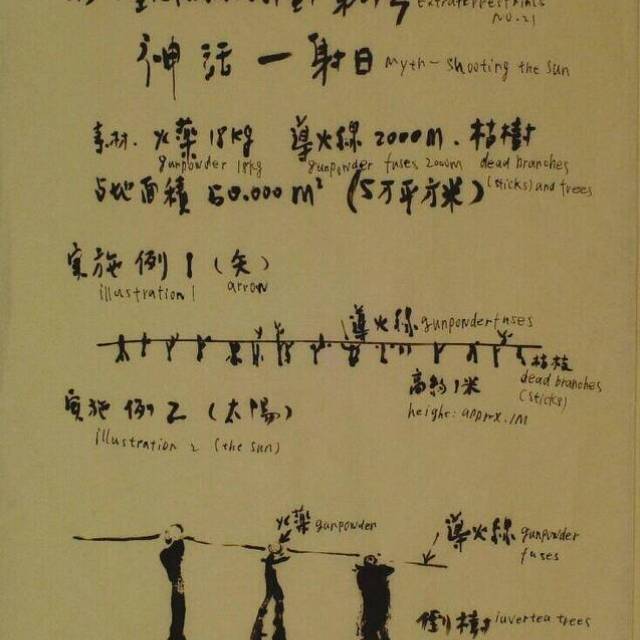 Extraterrestrials
No.21
神話一射日 Myth - shooting the sun
素材. 火薬 18kg 導火線 2000m. 枯樹
gunpowder 18kg gunpowder fuses 2000m dead branches
占地面積 50.000 m² (5万平方米) (sticks) and trees
実施例 1 (矢)
illustration 1 arrow
導火線 gunpowder fuses
枯枝
dead branches
(sticks)
高約1米
height: approx. 1M
実施例 2 (太陽)
illustration 2 (the sun)
火薬 gunpowder
導火線 gunpowder
fuses
倒樹 invertea trees